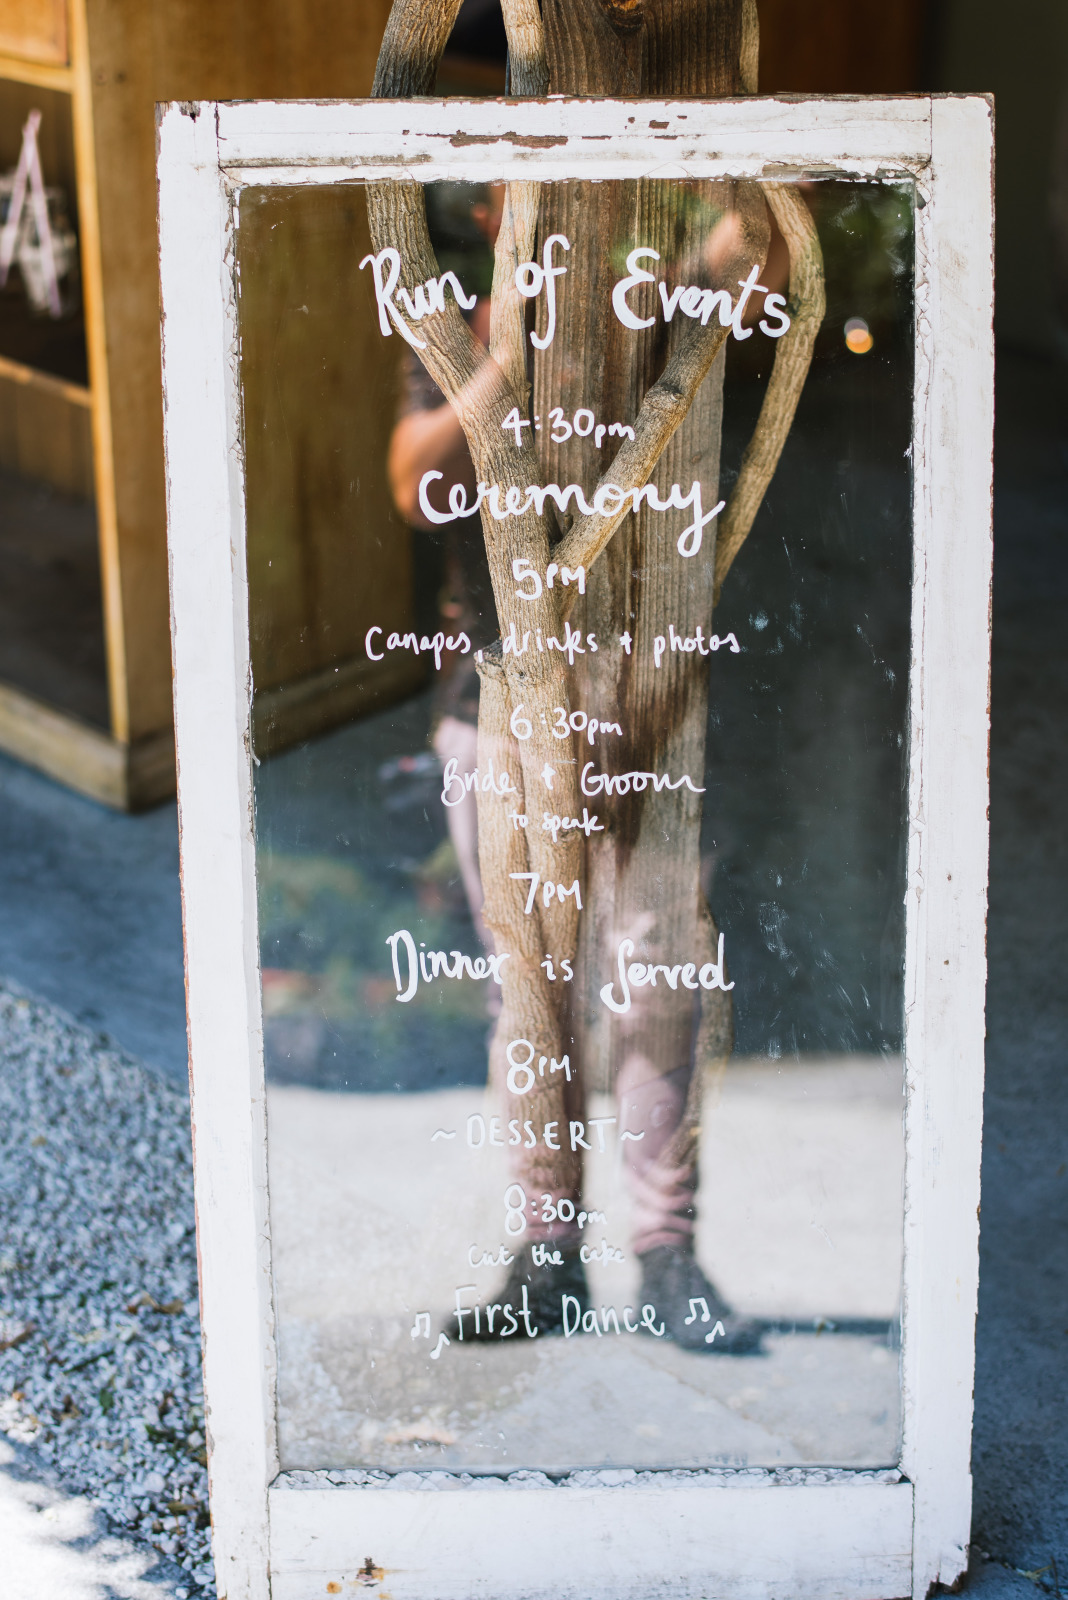 Run of Events
4:30pm
Ceremony
5PM
Canapes, drinks + photos
6:30pm
Bride + Groom
to speak
7PM
Dinner is Served
8PM
~ DESSERT ~
8:30pm
Cut the cake
♫♪ First Dance ♫♪